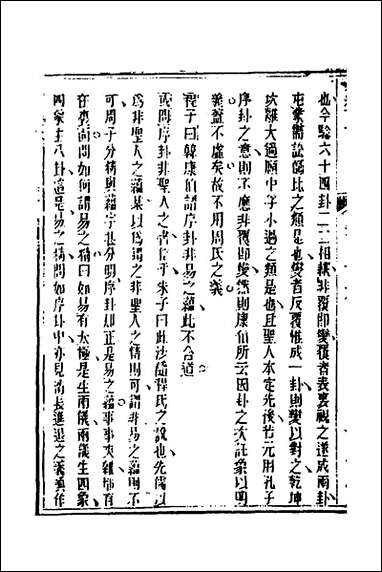 也今驗六十四卦二二相耦非覆卽變覆者表裏視之遂成兩卦
屯蒙需訟師比之類是也變者反覆惟成一卦則變以對之乾坤
坎離大過頤中孚小過之類是也且聖人本定先後若元用孔子
序卦之意則不應非覆卽變然則康伯所云因卦之次託象以明
義蓋不虛矣故不用周氏之義
程子曰韓康伯謂序卦非易之蘊此不合道
或問序卦非聖人之書信乎朱子曰此沙隨程氏之說也先儒以
爲非聖人之蘊某以爲謂之非聖人之精則可謂非易之蘊則不
可周子分精與蘊字甚分明序卦却正是易之蘊事事夾雜都有
在裏面問如何謂易之精曰如易有太極是生兩儀兩儀生四象
四象生八卦這是易之精問如序卦中亦見消長進退之義喚作